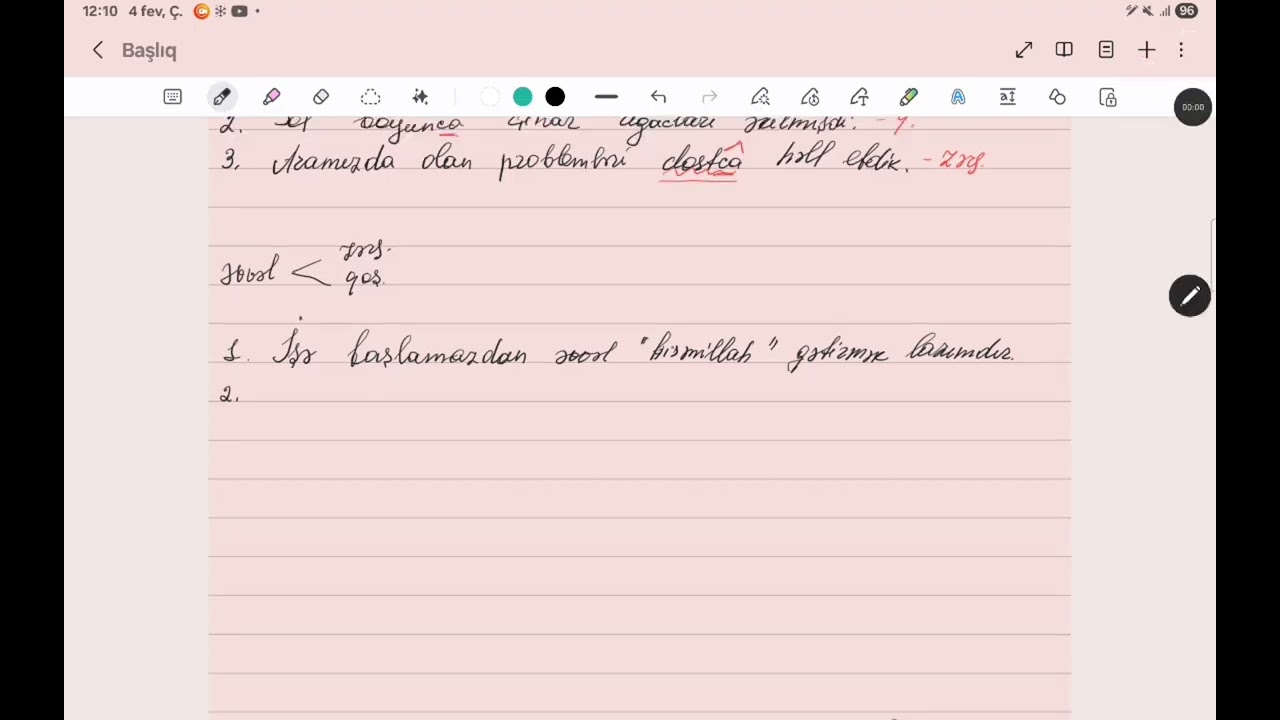 12:10 4 fev, Ç. 96
Başlıq
00:00
2. boyunca çinar ağacları salmışdı. - q.
3. Aramızda olan problemləri dostca həll etdik. - zrf.
əvvəl < zrf.
qoş.
1. İşə başlamazdan əvvəl "bismillah" gətirmək lazımdır.
2.